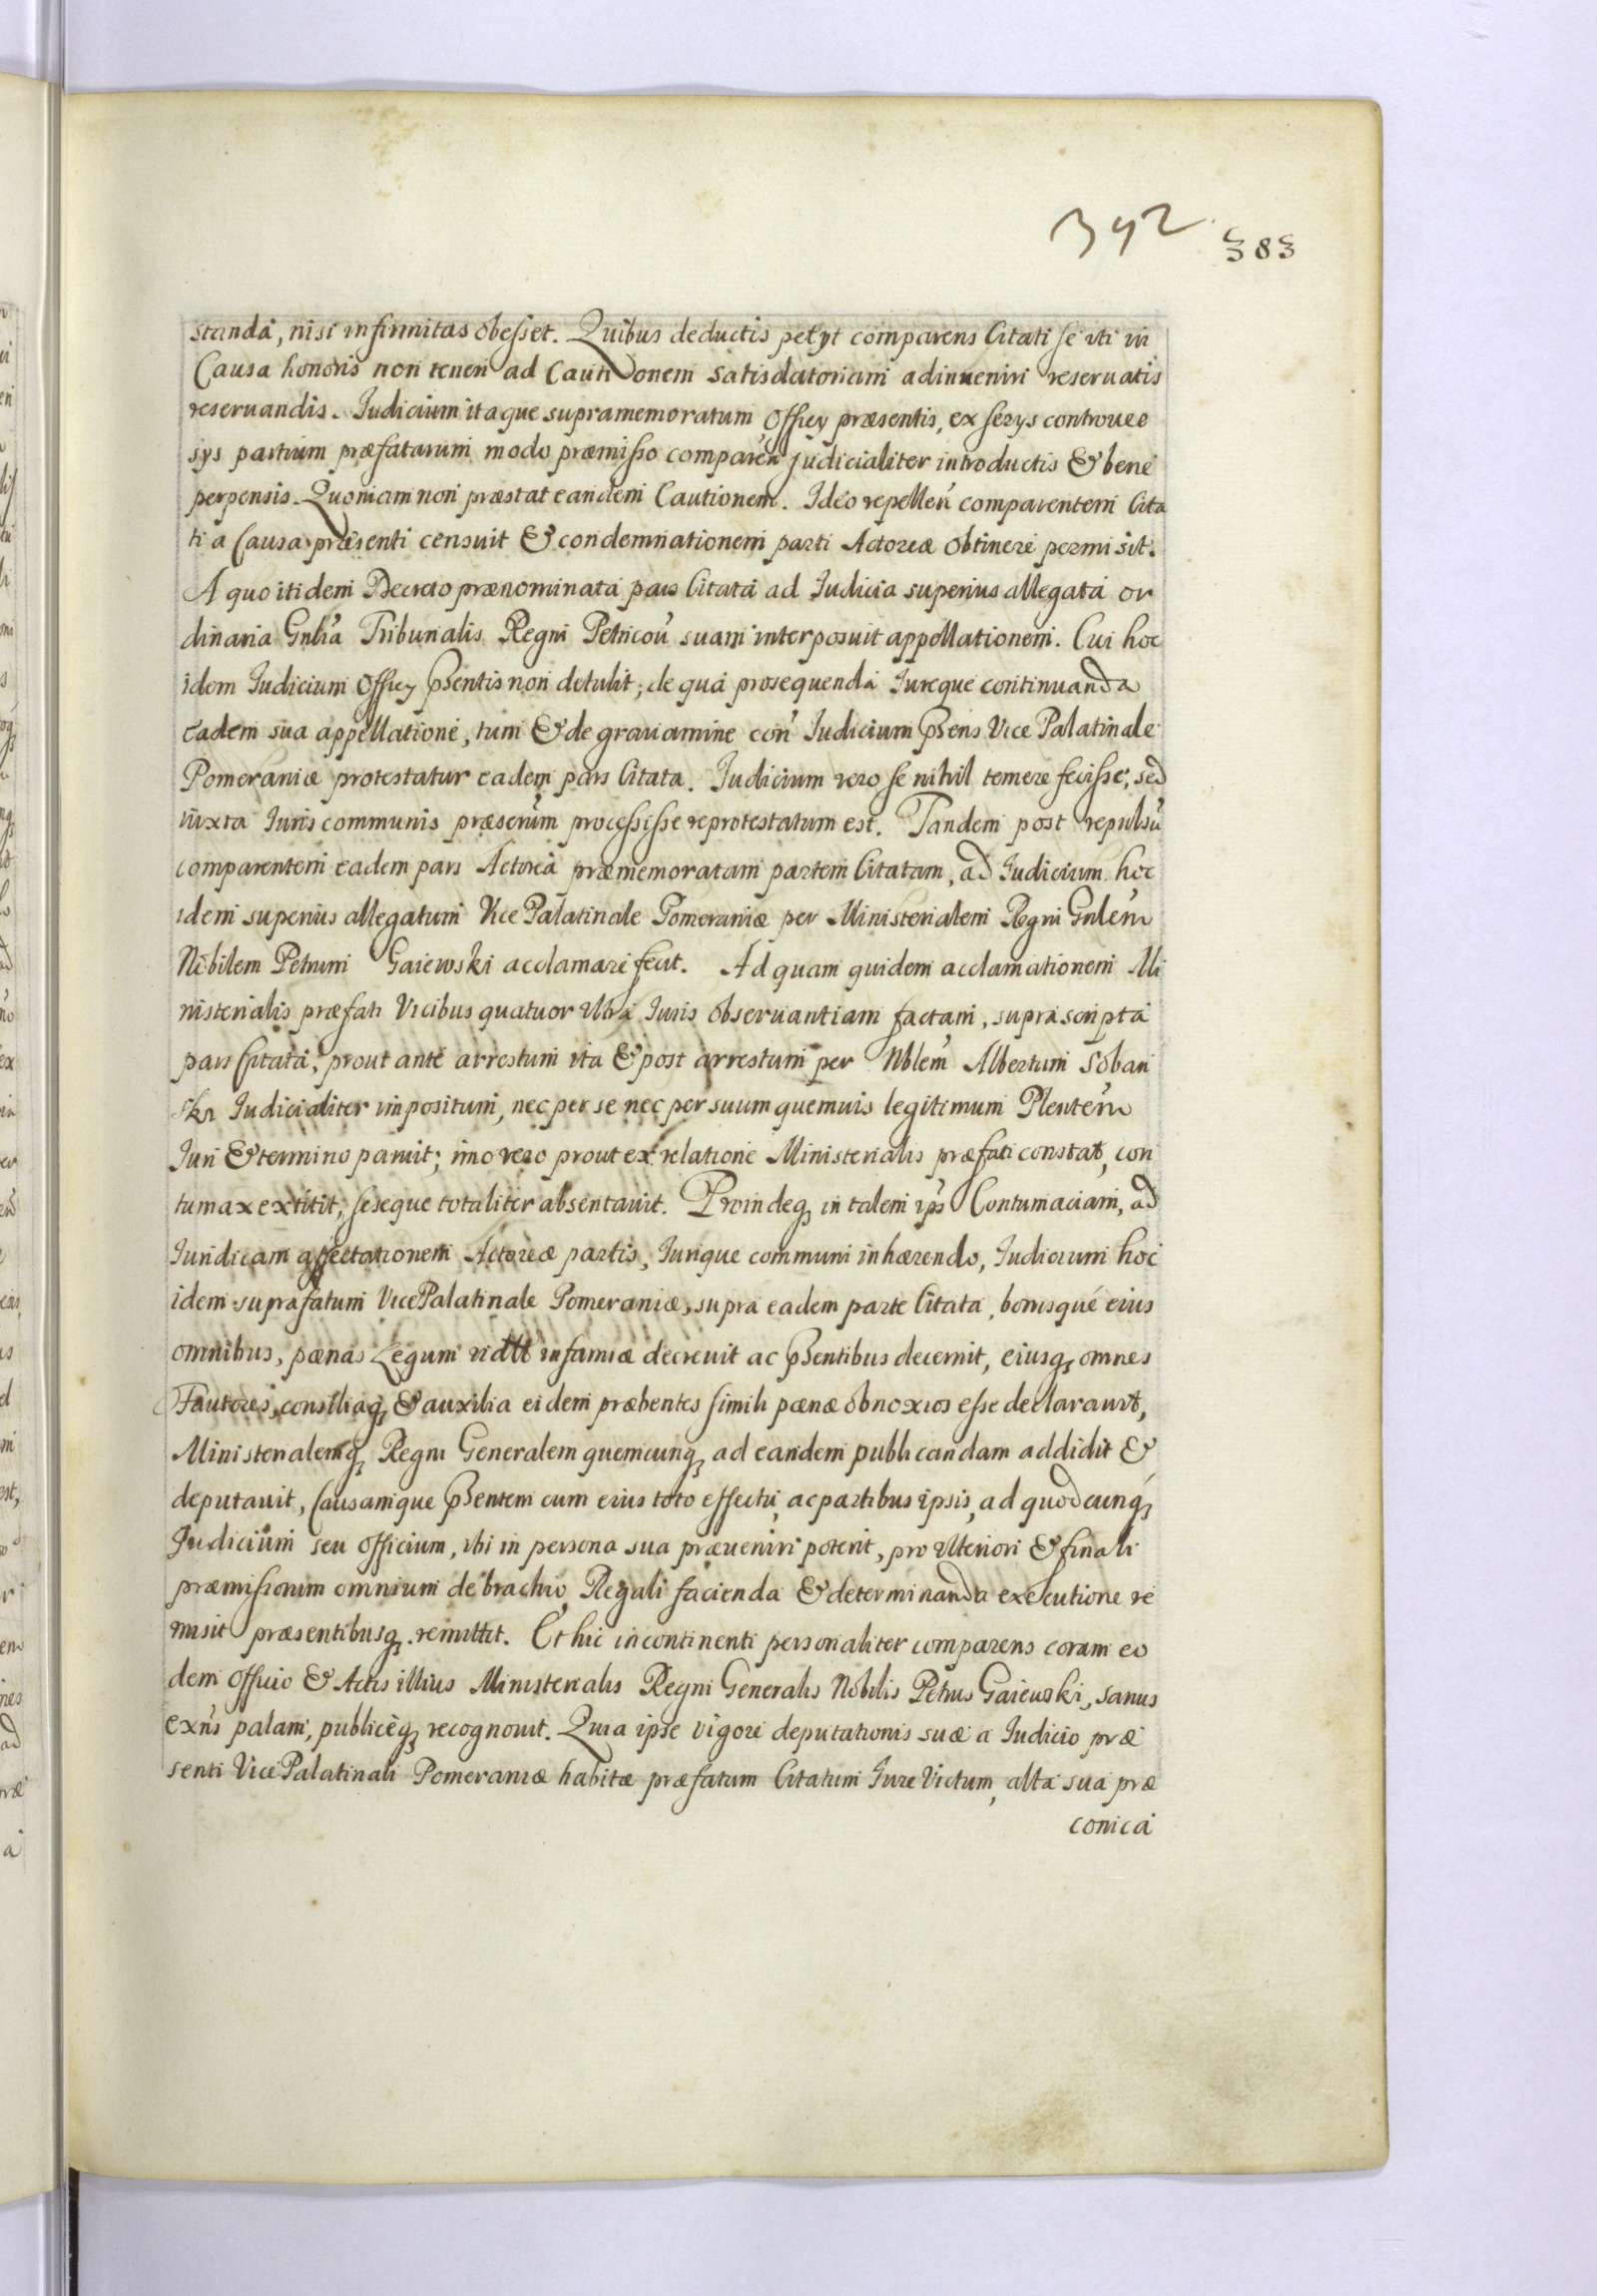 392.
383
standa, nisi infirmitas obesset. Quibus deductis petyt comparens Citati se uti in
Causa honoris non teneri ad Cautionem satisdatoriam adinueniri reseruatis
reseruandis. Judicium itaque supramemoratum Officy præsentis, ex serys controuer
sys partium præfatarum modo præmisso comparen̄ judicialiter introductis & bene
perpensis. Quoniam non præstat eandem Cautionem. Ideo repellen̄ comparentem Cita
ti a Causa præsenti censuit & condemnationem parti Actoreæ obtinere permisit.
A quo itidem Decreto prænominata pars Citata ad Judicia superius allegata or
dinaria Gnlia Tribunalis Regni Petricou̇ suam interposuit appellationem. Cui hoc
idem Judicium Officy p̄sentis non detulit; de qua prosequenda Jureque continuanda
eadem sua appellatione, tum & de grauamine con̄ Judicium p̄sens Vice Palatinale
Pomeraniæ protestatur eadem pars Citata. Judicium vero se nihil temere fecisse, sed
iuxta Juris communis præscrum processisse reprotestatum est. Tandem post repulsū
comparentem eadem pars Actorea præmemoratam partem Citatam, ad Judicium hoc
idem superius allegatum Vice Palatinale Pomeraniæ per Ministerialem Regni Gnlem
Nobilem Petrum Gaiewski acclamare fecit. Ad quam quidem acclamationem Mi
nisterialis præfati Vicibus quatuor Ultra Juris obseruantiam factam, suprascripta
pars Citata, prout ante arrestum ita & post arrestum per Nblem Albertum Soban
ski Judicialiter impositum, nec per se nec per suum quemuis legitimum Plentem
Juri & termino paruit; imo vero prout ex relatione Ministerialis præfati constat, con
tumax extitit, seseque totaliter absentauit. Proindeq; in talem ips̄ Contumaciam, ad
Juridicam affectationem Actoreæ partis, Jurique communi inhærendo, Judicium hoc
idem suprafatum VicePalatinale Pomeraniæ, supra eadem parte Citata, bonisque eius
omnibus, pænas Legum vidtt infamiæ decreuit ac p̄sentibus decernit, eiusq; omnes
Fautores, consiliaq; & auxilia eidem præbentes simili pænæ obnoxios esse declarauit,
Ministerialemq; Regni Generalem quemcunq; ad eandem publicandam addidit &
deputauit, Causamque p̄sentem cum eius toto effectu, ac partibus ipsis, ad quodcunq;
Judicium seu Officium, ubi in persona sua præueniri poterit, pro ulteriori & finali
præmissorum omnium de brachio Regali facienda & determinanda executione re
misit præsentibusq; remittit. Et hic incontinenti personaliter comparens coram eo
dem Officio & Actis illius Ministerialis Regni Generalis Nobilis Petrus Gaiewski, sanus
exn̄s palam, publiceq; recognouit. Quia ipse vigore deputationis suæ a Judicio præ
senti VicePalatinali Pomeraniæ habitæ præfatum Citatum Jure Victum, alta sua præ
conica